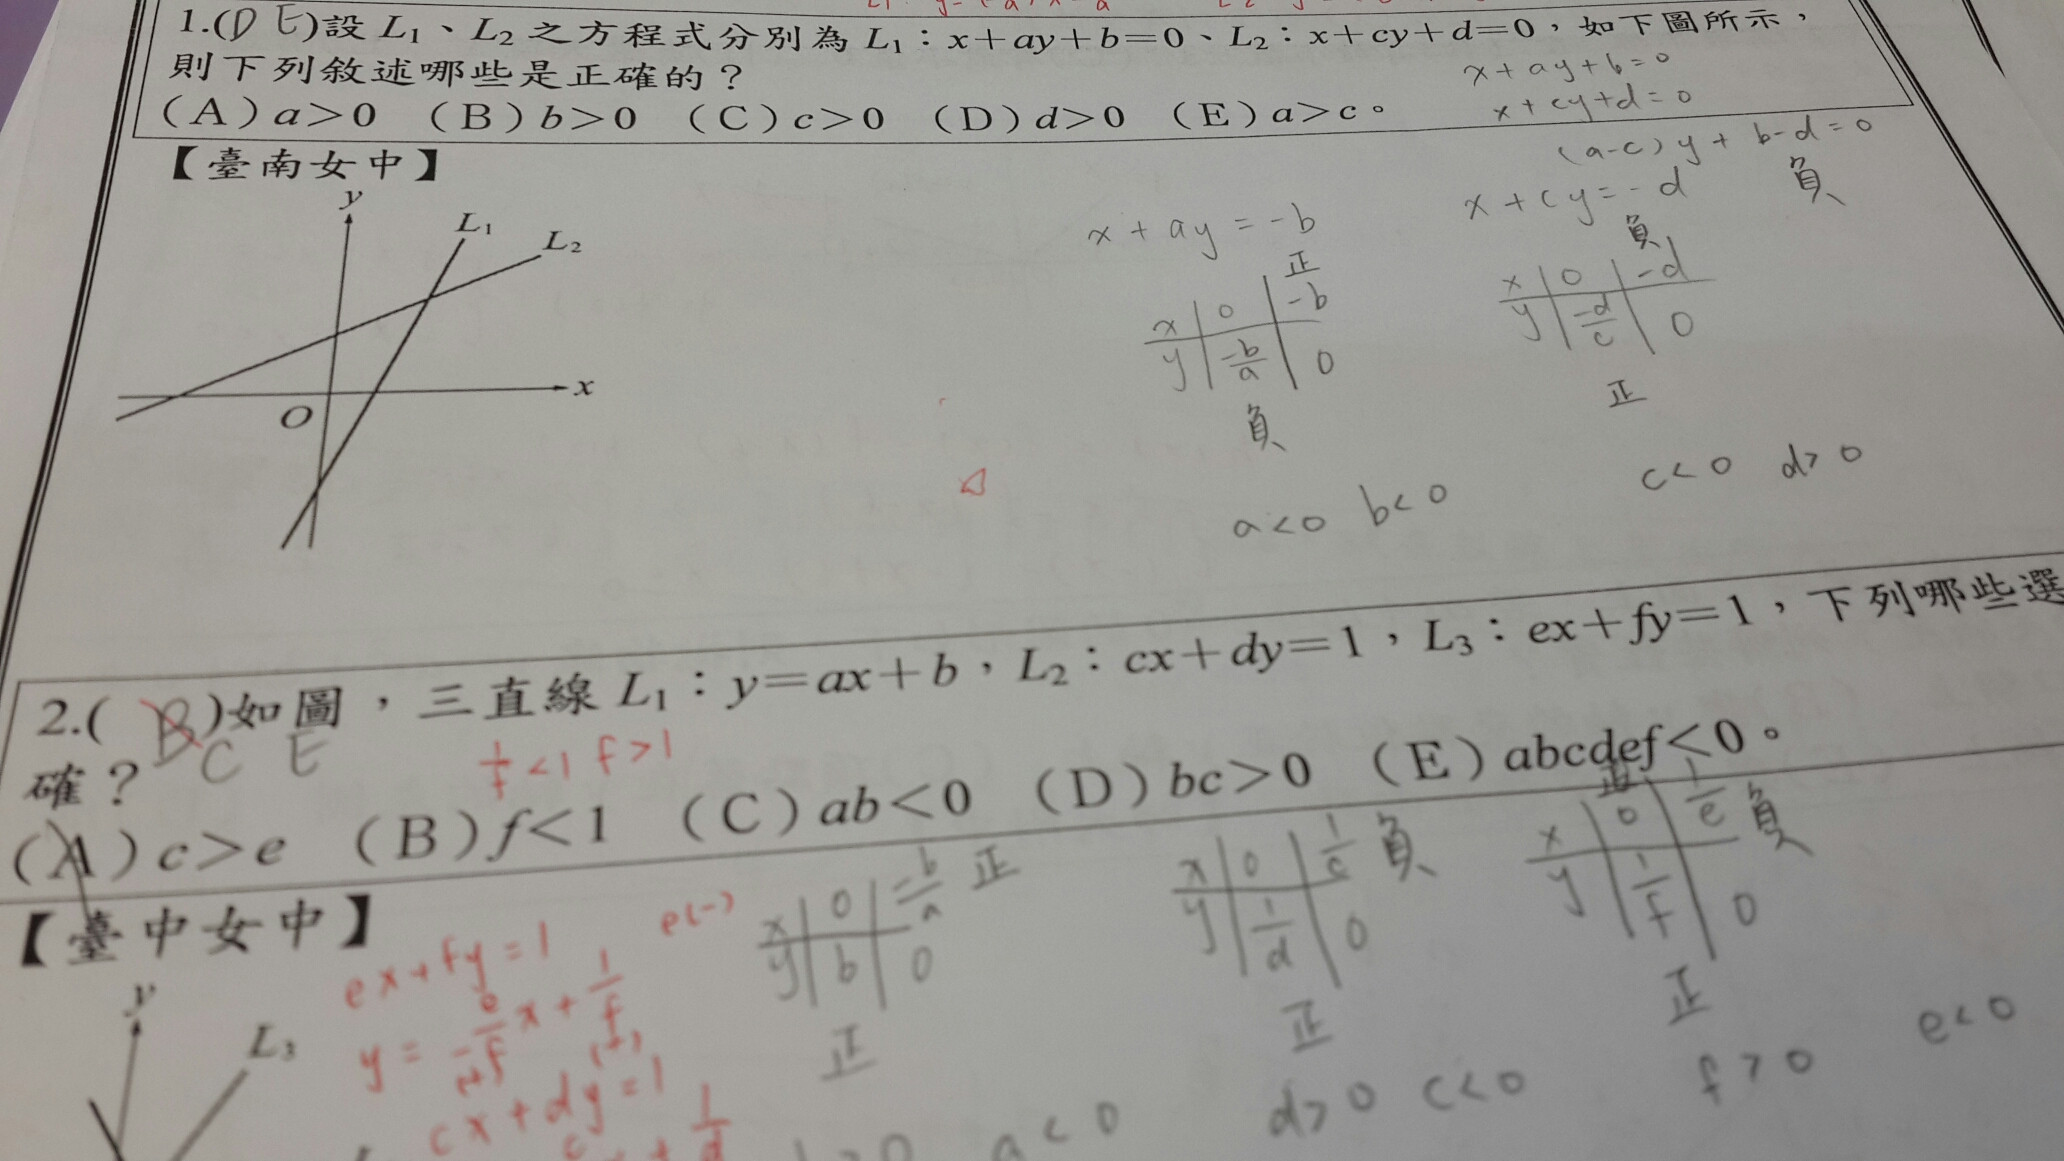 1.(D E)設 L₁、L₂ 之方程式分別為 L₁：x+ay+b=0、L₂：x+cy+d=0，如下圖所示，
則下列敘述哪些是正確的？
(A) a>0 (B) b>0 (C) c>0 (D) d>0 (E) a>c。
x+ay+b=0
x+cy+d=0
(a-c)y+b-d=0
負
【臺南女中】
y
L₁
L₂
x
O
x+ay=-b
正
x 0 -b
y -b/a 0
負
a<0 b<0
x+cy=-d
負
x 0 -d
y -d/c 0
正
c<0 d>0
2.( B )如圖，三直線 L₁：y=ax+b，L₂：cx+dy=1，L₃：ex+fy=1，下列哪些選
C E
確？
1/f<1 f>1
(A) c>e (B) f<1 (C) ab<0 (D) bc>0 (E) abcdef<0。
【臺中女中】
y
L₃
ex+fy=1
e(-)
y=-e/f x+1/f
(+)
(+)
cx+dy=1
1/d
x 0 -b/a 正
y b 0
正
a<0
x 0 1/c 負
y 1/d 0
正
d>0 c<0
正
x 0 1/e 負
y 1/f 0
正
f>0 e<0